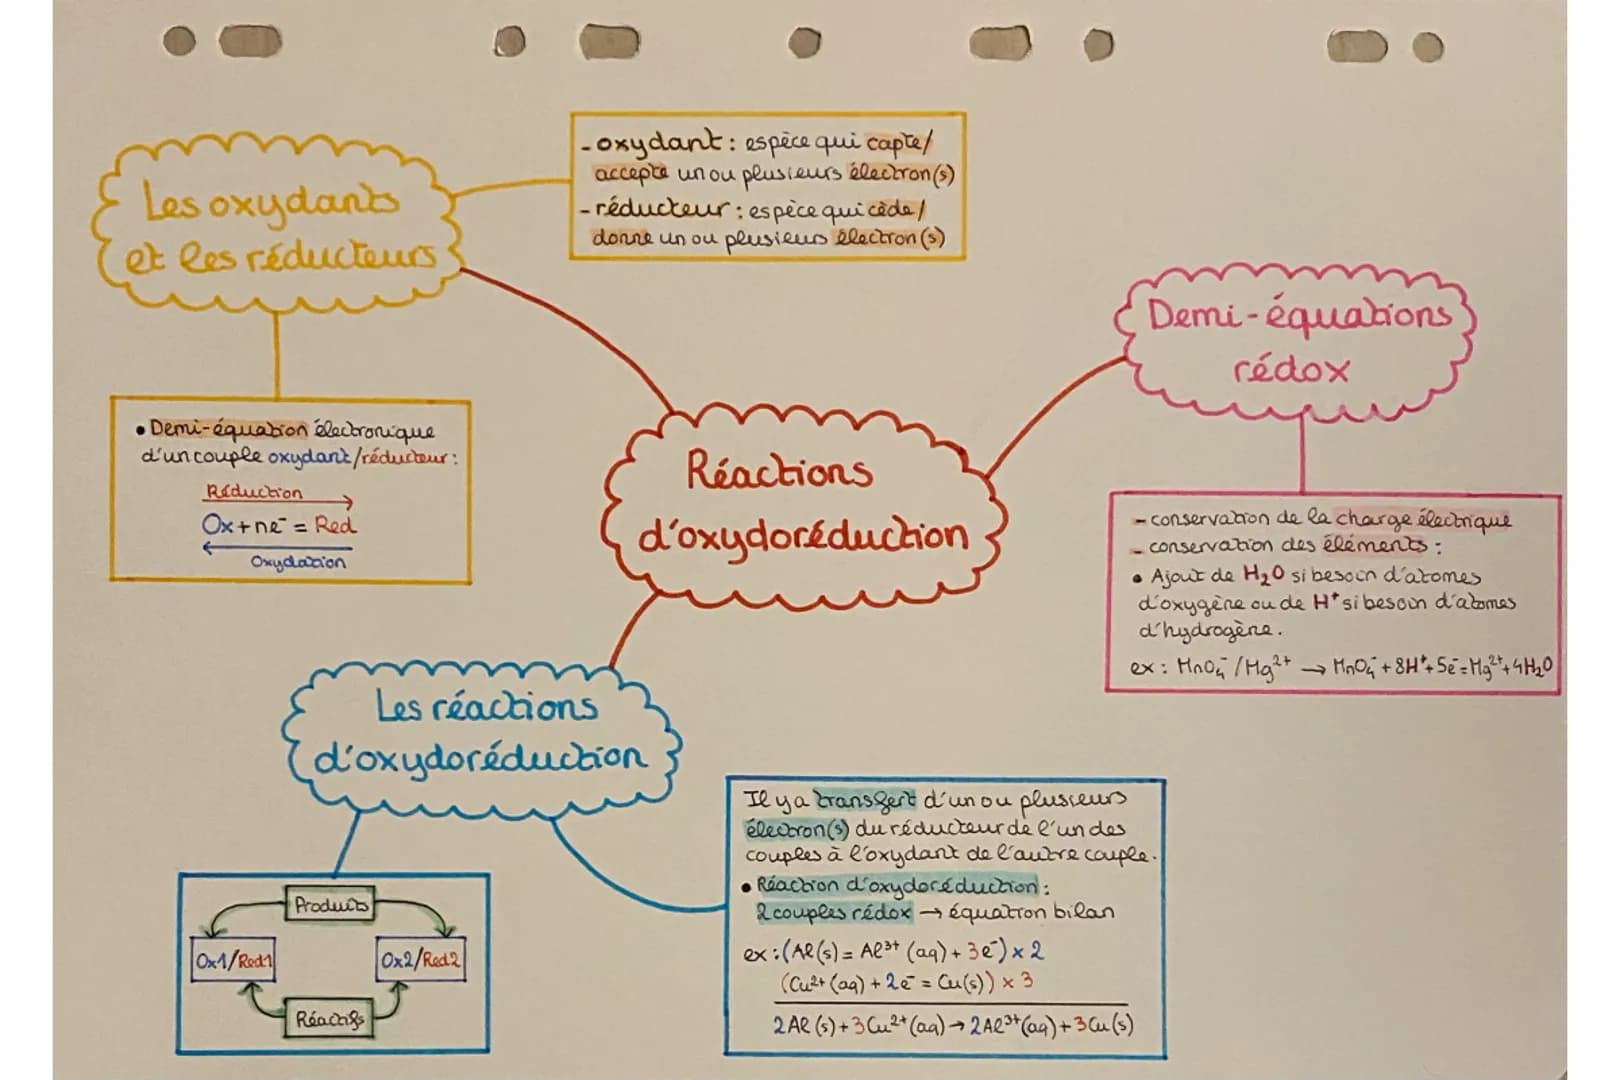 Les oxydants
et les réducteurs
- oxydant : espèce qui capte/
accepte un ou plusieurs électron(s)
- réducteur : espèce qui cède/
donne un ou plusieurs électron(s)
• Demi-équation électronique
d'un couple oxydant/réducteur :
Réduction
Ox + ne⁻ = Red
Oxydation
Réactions
d'oxydoréduction
Demi-équations
rédox
- conservation de la charge électrique
- conservation des éléments :
• Ajout de H₂O si besoin d'atomes
d'oxygène ou de H⁺ si besoin d'atomes
d'hydrogène.
ex : MnO₄⁻/Mg²⁺ → MnO₄⁻ + 8H⁺ + 5e⁻ = Mg²⁺ + 4H₂O
Les réactions
d'oxydoréduction
Produits
Ox1/Red1
Ox2/Red2
Réactifs
Il y a transfert d'un ou plusieurs
électron(s) du réducteur de l'un des
couples à l'oxydant de l'autre couple.
• Réaction d'oxydoréduction :
2 couples rédox → équation bilan
ex : (Al(s) = Al³⁺ (aq) + 3e⁻) x 2
(Cu²⁺ (aq) + 2e⁻ = Cu(s)) x 3
2Al (s) + 3Cu²⁺ (aq) → 2Al³⁺ (aq) + 3Cu (s)